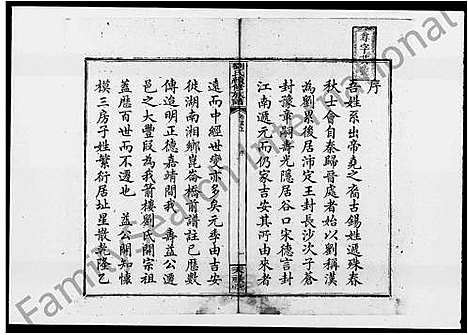 序
吾姓系出帝堯之裔古錫姓遞殊春
秋士會自秦歸晉處者始以劉稱漢
為劉□後居沛定王封長沙次子蒼
封豫章嗣壽光隱居谷口宋德言封
江南遞元而仍家吉安其所由來者
遠而中經世變亦多矣元季由吉安
徙湖南湘鄉崑崙橋前譜註已歷數
傳迨明正德嘉靖間我 壽益公遷
邑之大豐叚為我箭樓劉氏開宗祖
蓋歷百世而不遷也 益公開知懷
模三房子姓繁衍居址星散乾隆乙
劉氏續修族譜
FamilySearch International